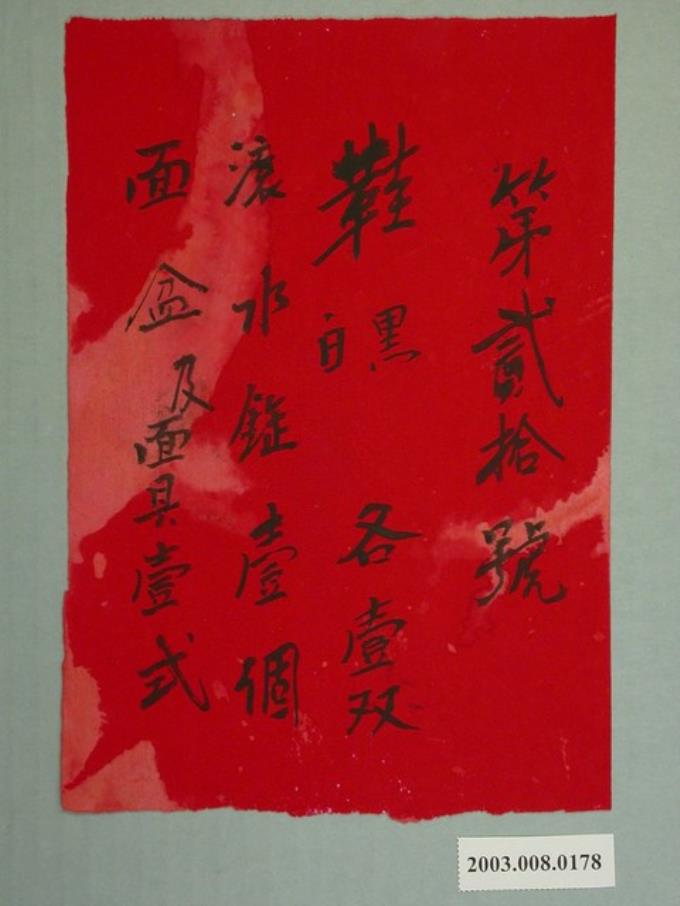 第貳拾號
鞋 黑白 各壹双
滾水錠壹個
面盆及面具壹式
2003.008.0178